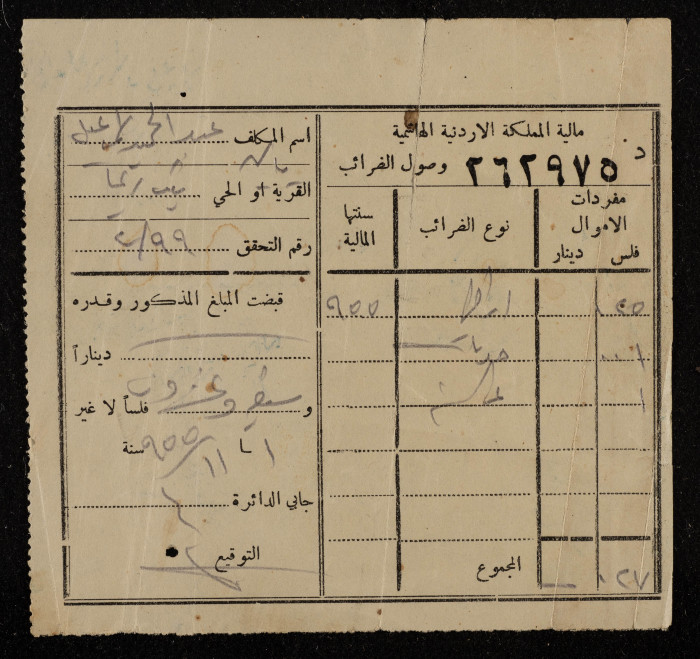 مالية المملكة الاردنية الهاشمية
د ٢٦٢٩٧٥ وصول الضرائب
مفردات الاموال
فلس دينار
نوع الضرائب
سنتها المالية
٠٢٥
٩٥٥
٠٠١
١
المجموع
٠٢٧
اسم المكلف عبد
القرية او الحي
رقم التحقق ٢/٩٩
قبضت المبلغ المذكور وقدره
ديناراً
و سبعة وعشرون فلساً لا غير
١ / ١١ / ٩٥٥ سنة
جابي الدائرة
التوقيع